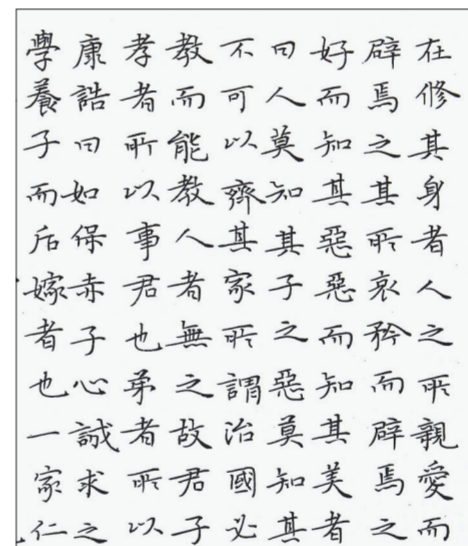 在修其身者人之所親愛而
辟焉之其所哀矜而辟焉之
好而知其惡惡而知其美者
曰人莫知其子之惡莫知其
不可以齊其家所謂治國必
教而能教人者無之故君子
孝者所以事君也弟者所以
康誥曰如保赤子心誠求之
學養子而后嫁者也一家仁